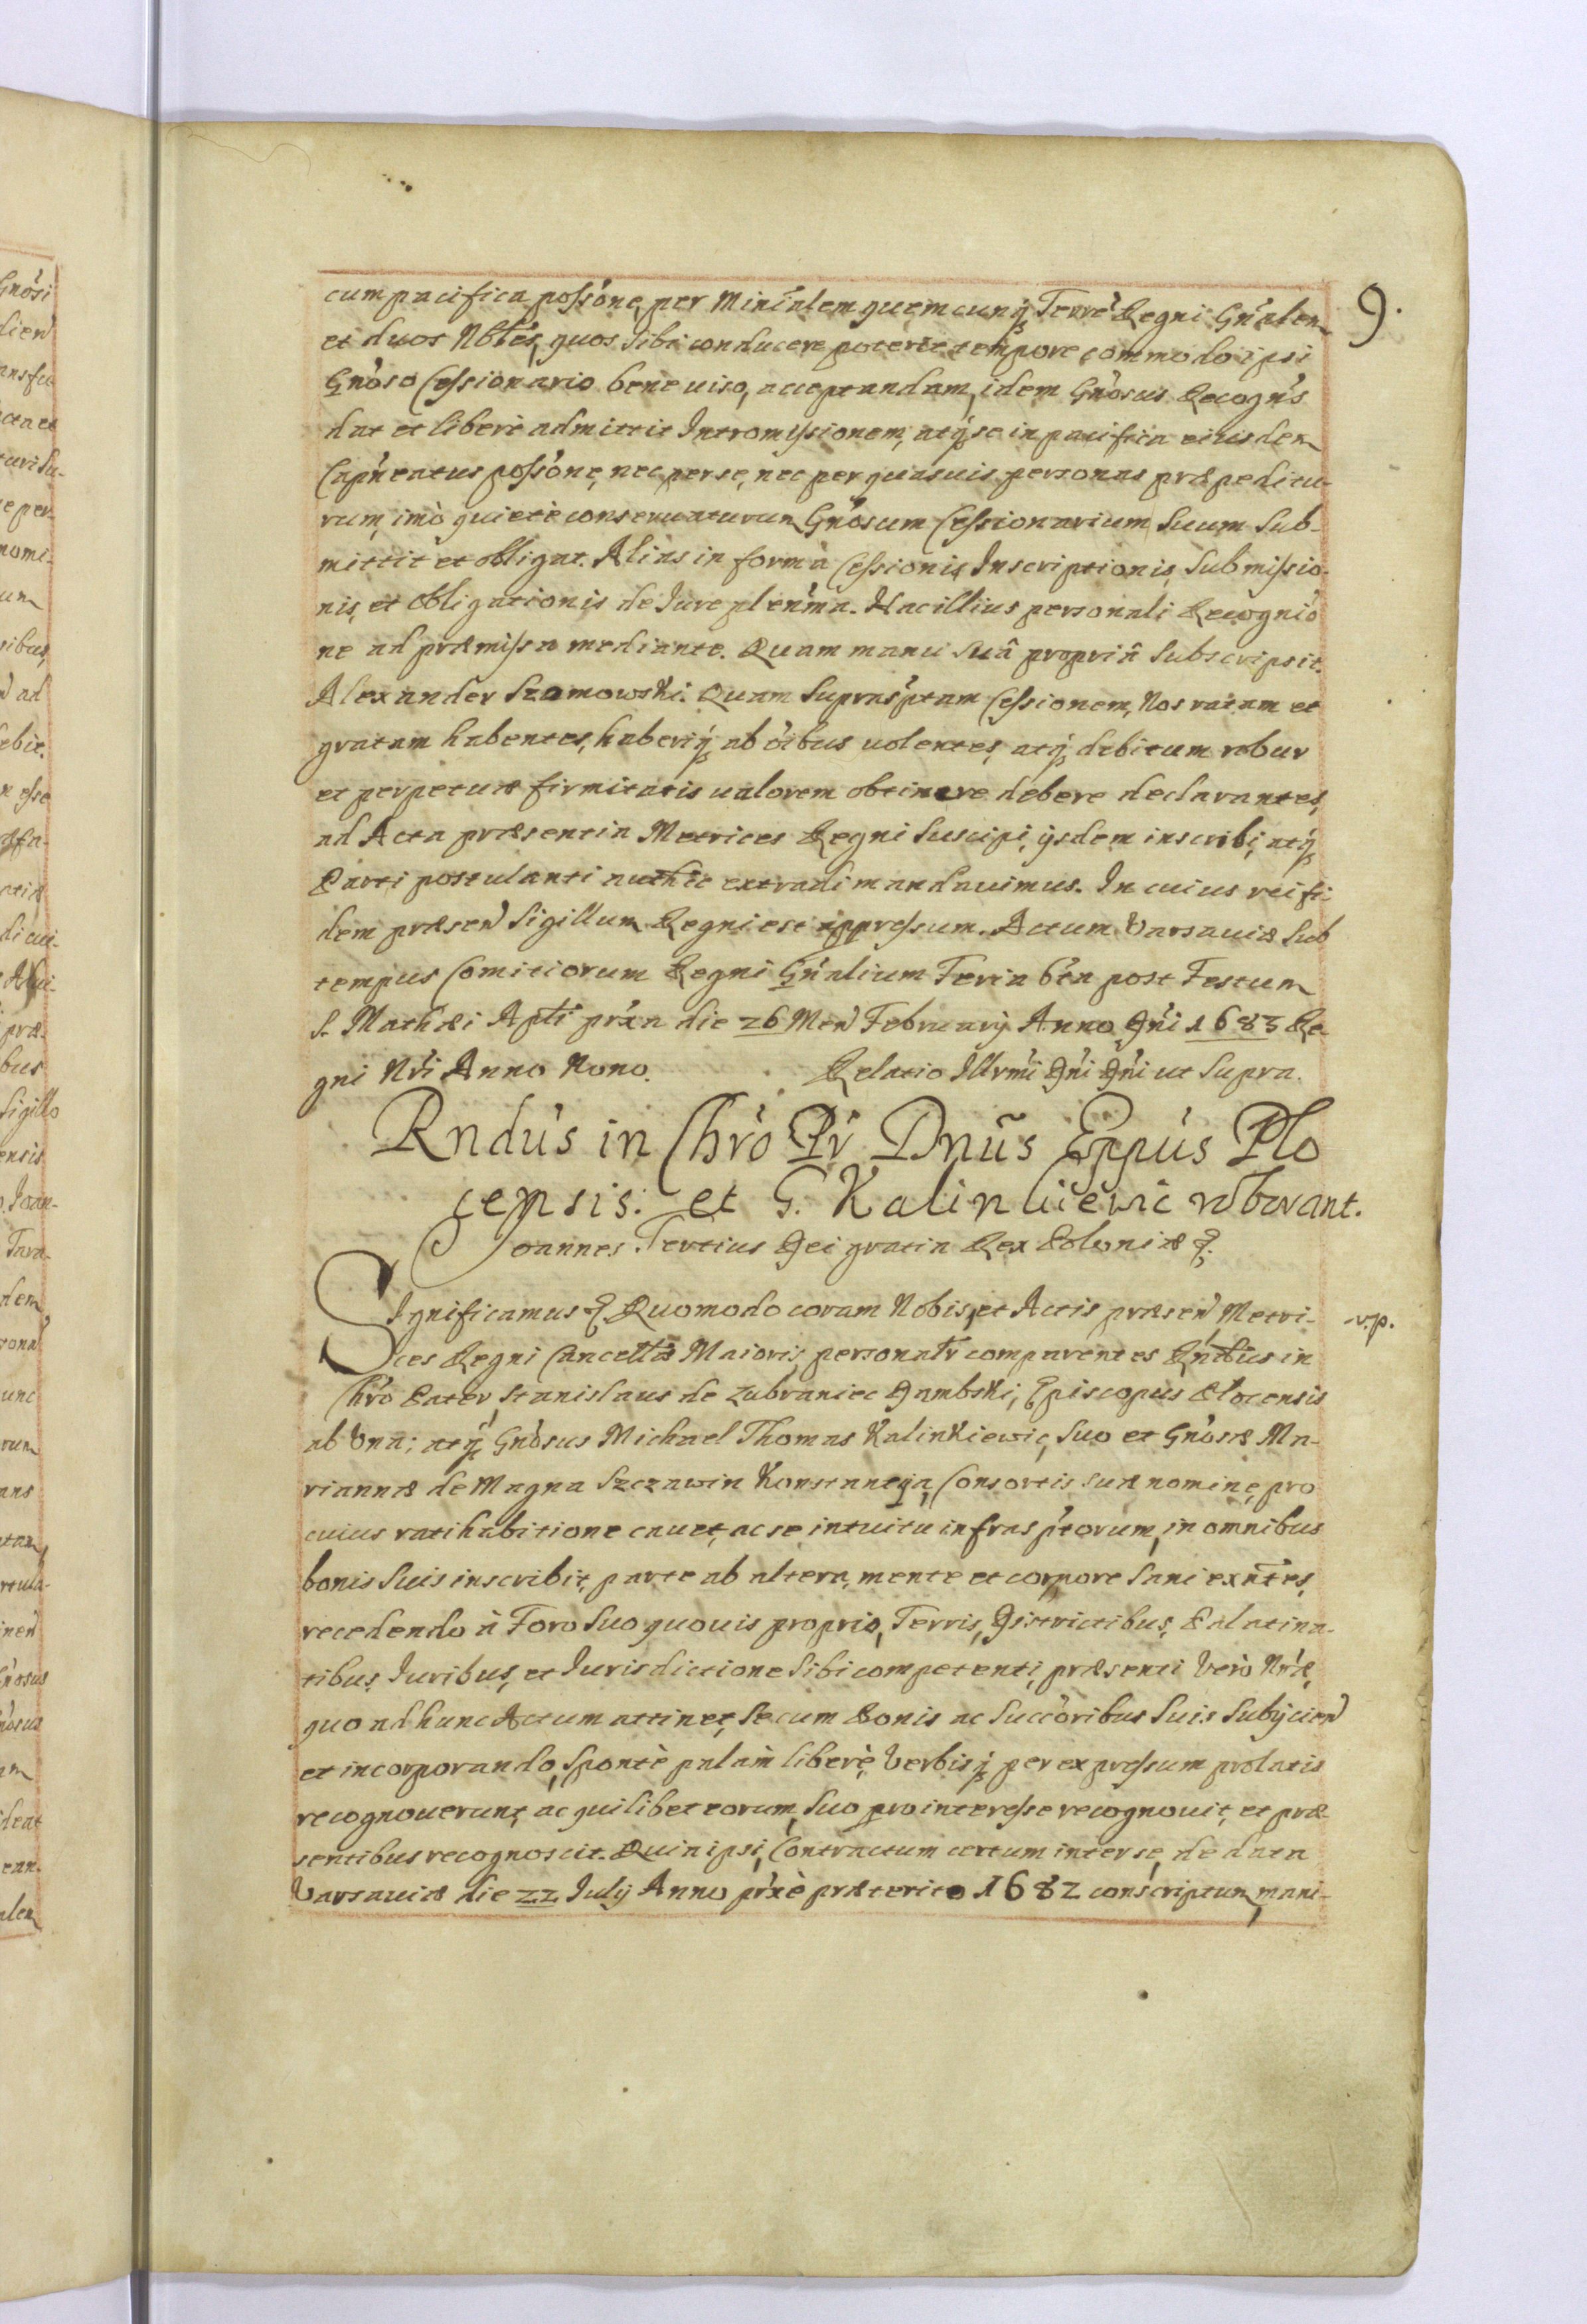 9.
cum pacifica possóne, per Minĩalem quemcunq́ Terrẽ Regni Gńalem
et duos Nobĺes, quos sibi conducere poterit tempore commodo ipsi
Gńoso Cessionario beneviso, acceptandam, idem Gńosus Recogńs
dat et liberè admittit Intromissionem, atq́ se in pacifica eiusdem
Capńeatus possóne, nec per se, nec per quasuis personas præpeditu-
rum, imò quietè conseruaturum Gńosum Cessionarium suum sub-
mittit et obligat. Alias in formà Cessionis, Inscriptionis, submissio-
nis, et obligationis de Iure pleńma. Hac illius personali Recognió
ne ad præmissa mediante. Quam manu suâ propriâ subscripsit.
Alexander Szamowski. Quam suprasṕtam Cessionem, Nos ratam et
gratam habentes, haberiq́ ab óibus uolentes, atq́ debitum robur
et perpetuæ firmitatis ualorem obtinere debere declarantes,
ad Acta præsentia Metrices Regni suscipi, ijsdem inscribi, atq́
Parti postulanti authće extradi mandauimus. In cuius rei fi-
dem præseń Sigillum Regni est appressum. Actum Varsauiæ sub
tempus Comitiorum Regni Gńalium Feria 6ta post Festum
S. Mathæi Apli prẋa die 26 Meń February Anno Dńi 1683 Re-
gni Nŕi Anno Nono. Relatio Illrḿi Dńi Dńi ut supra.
Rndús in Chró Pŕ Dnũs Eppús Plo
censis. et G. Kalinkiewic roborant.
Joannes Tertius Dei gratia Rex Poloniæ &.
Significamus & Quomodo coram Nobis, et Actis præseń Metri-
v.p.
ces Regni Cancellæ Maioris, personalr̃ comparentes Rńdus in
Chró Pater, Stanislaus de Lubraniec Dambski, Episcopus Plocensis
ab Vna; atq́ Gńosus Michael Thomas Kalinkiewic, suo et Gńosæ Ma-
riannæ de Magna Szczawin Konstantija, Consortis suæ nomine, pro
cuius ratihabitione cauet, ac se intuitu infrasṕtorum, in omnibus
bonis suis inscribit, parte ab altera, mente et corpore sani exńtes,
recedendo à Foro suo quouis proprio, Terris, Districtibus, Palatina-
tibus, Iuribus, et Iurisdictione sibi competenti, præsenti verò Nŕæ,
quo ad hunc Actum attinet, se cum Bonis ac Succóribus suis subijcień
et incorporando, sponte palàm liberè, verbisq́ per expressum prolatis
recognouerunt, ac quilibet eorum, suo pro interesse recognouit, et præ-
sentibus recognoscit. Quin ipsi, Contractum certum inter se, de data
Varsauiæ die 22 July Anno prẋè præterito 1682 conscriptum, mani-